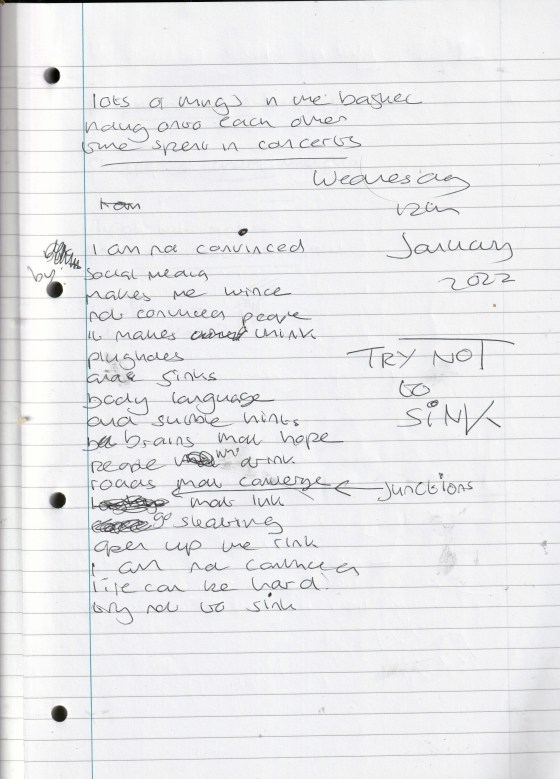 lots of things in the basket
hang onto each other
time spent in concerts
Wednesday
12th
January
2022
I am
I am not convinced
by:
social media
makes me wince
not convinced people
it makes think
plugholes
and sinks
body language
and subtle hints
brains that hope
people who drink
roads that converge
junctions
that link
go skating
open up the rink
I am not convinced
life can be hard.
try not to sink
TRY NOT
to
SINK